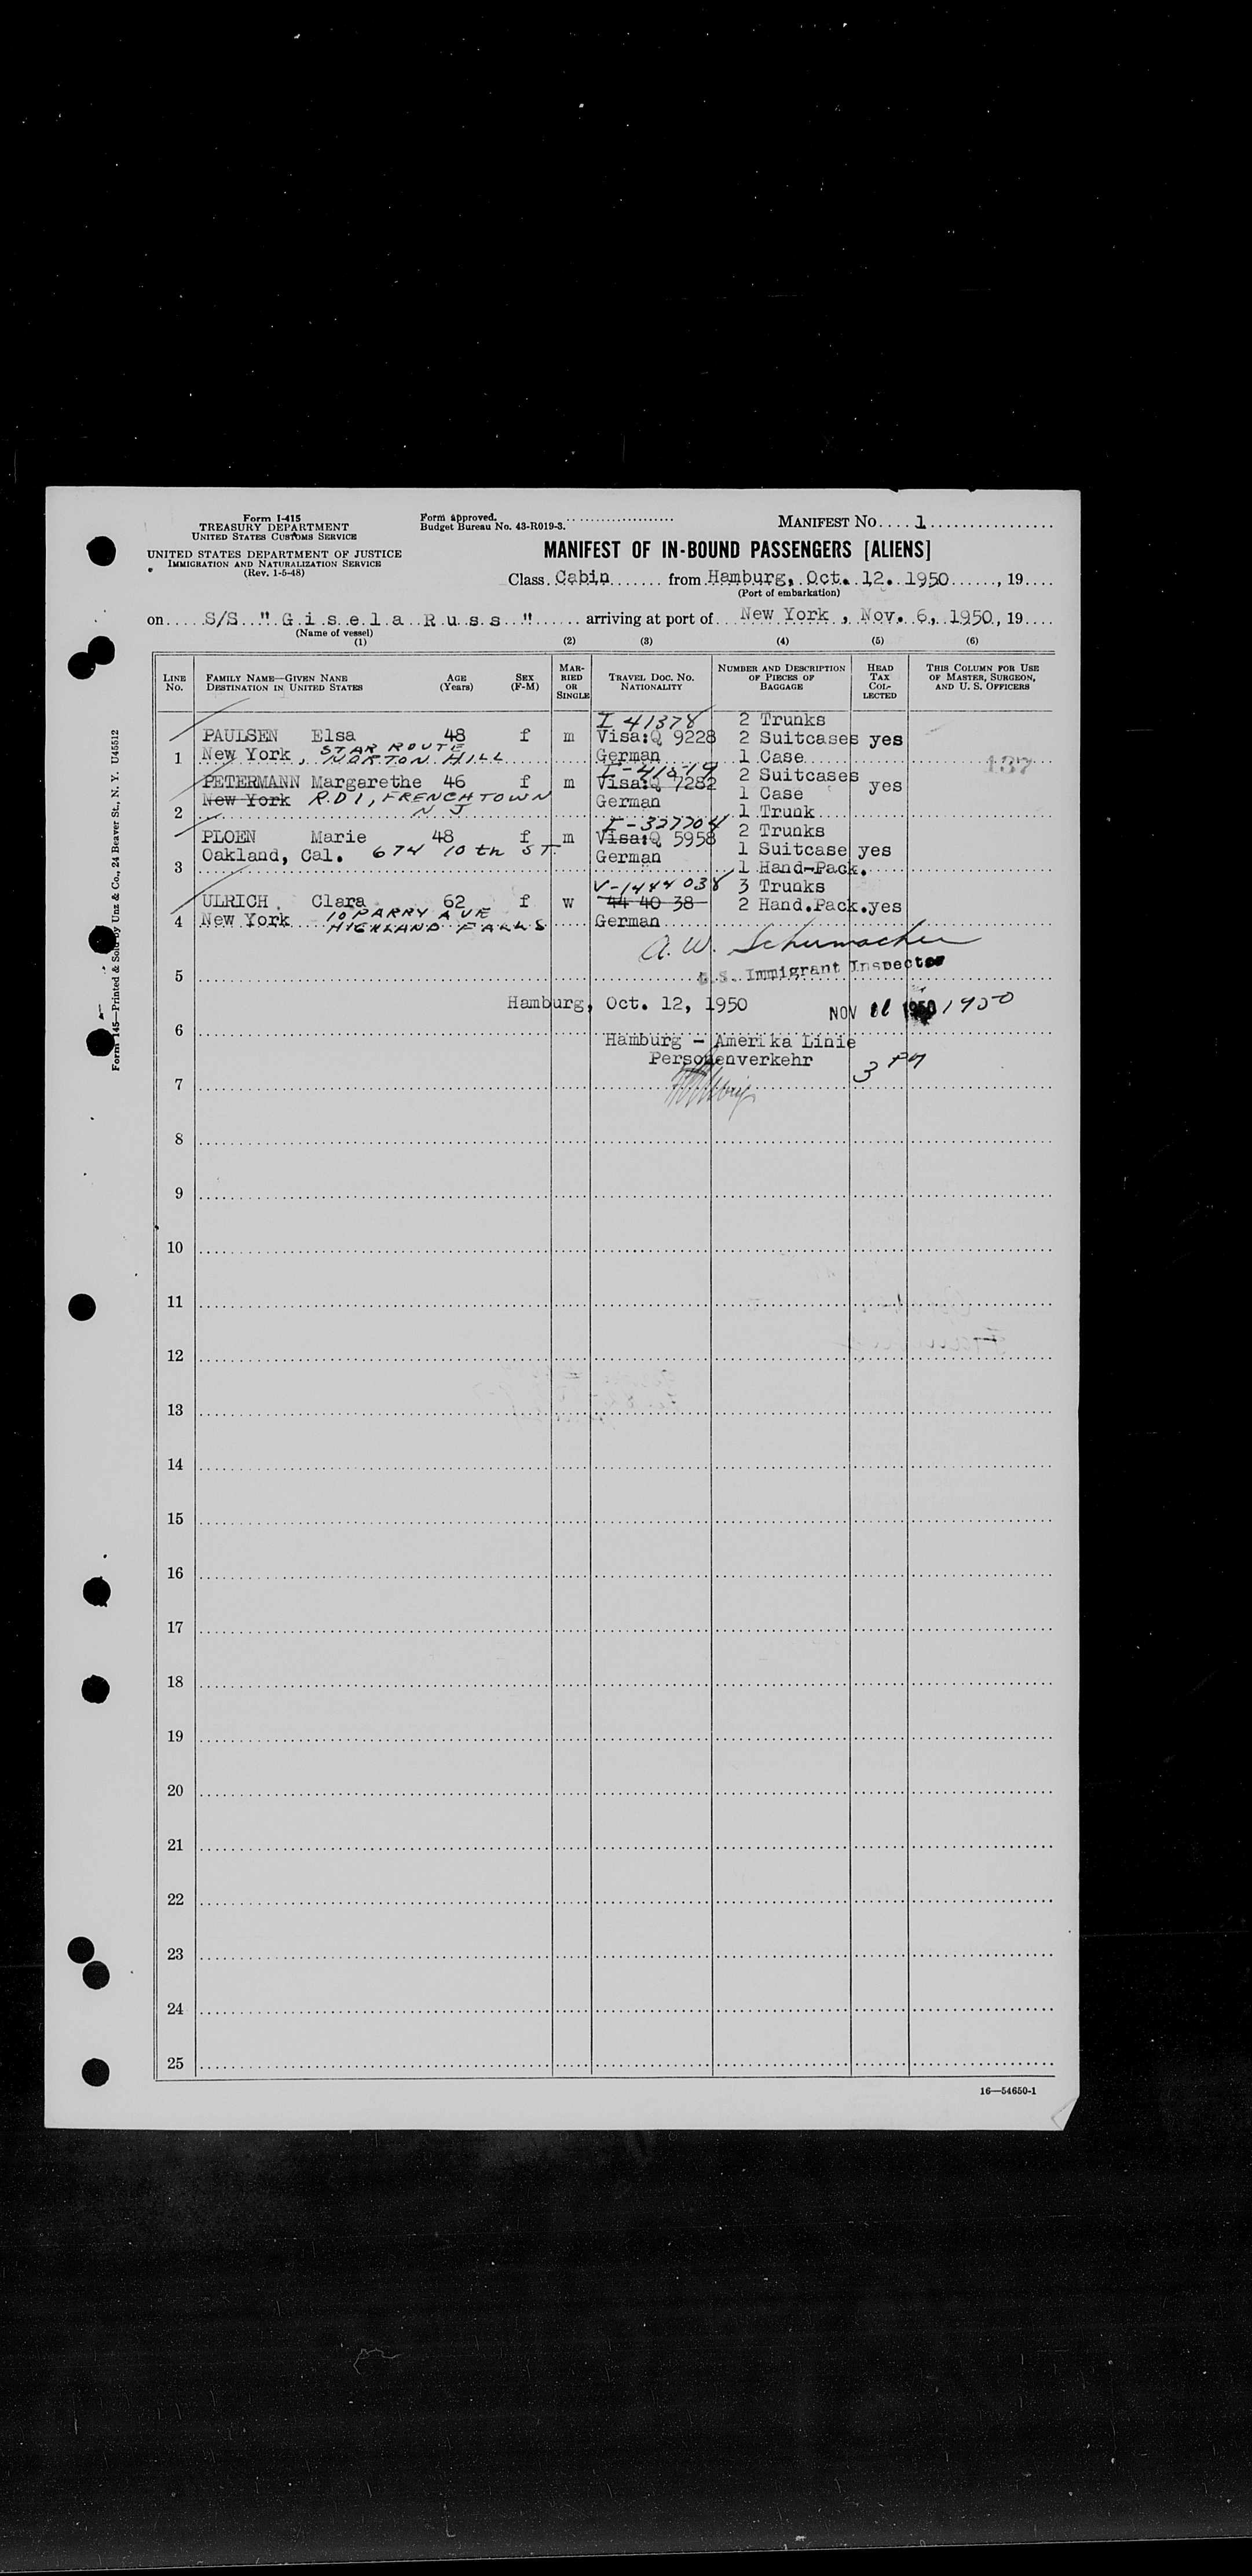 Form I-415
TREASURY DEPARTMENT
UNITED STATES CUSTOMS SERVICE
UNITED STATES DEPARTMENT OF JUSTICE
IMMIGRATION AND NATURALIZATION SERVICE
(Rev. 1-5-48)
Form approved.
Budget Bureau No. 43-R019-3.
MANIFEST NO. 1
MANIFEST OF IN-BOUND PASSENGERS [ALIENS]
Class Cabin from Hamburg, Oct. 12. 1950, 19
(Port of embarkation)
on S/S " G i s e l a R u s s " arriving at port of New York, Nov. 6, 1950, 19
(Name of vessel)
(1) (2) (3) (4) (5) (6)
LINE NO.
FAMILY NAME—GIVEN NANE
DESTINATION IN UNITED STATES
AGE (Years)
SEX (F-M)
MARRIED OR SINGLE
TRAVEL DOC. NO.
NATIONALITY
NUMBER AND DESCRIPTION OF PIECES OF BAGGAGE
HEAD TAX COLLECTED
THIS COLUMN FOR USE OF MASTER, SURGEON, AND U. S. OFFICERS
I 41378 2 Trunks
PAULSEN Elsa 48 f m Visa:Q 9228 2 Suitcases yes
1 New York, STAR ROUTE NORTON HILL German 1 Case 137
2 Suitcases
PETERMANN Margarethe 46 m Visa:Q 7282 1 Case yes
New York R.D 1, FRENCHTOWN German
2 N J 1 Trunk
I-327704 2 Trunks
PLOEN Marie 48 f m Visa:Q 5958
Oakland, Cal. 674 10th ST. German 1 Suitcase yes
3 1 Hand-Pack.
V-1444038 3 Trunks
ULRICH Clara 62 f w 44 40 38 2 Hand.Pack. yes
4 New York 10 PARRY AVE HIGHLAND FALLS German
A. W. Schumacher
5 U.S. Immigrant Inspector
Hamburg, Oct. 12, 1950 NOV 1950 1950
6
Hamburg - Amerika Linie
Personenverkehr 3 PM
7
8
9
10
11
12
13
14
15
16
17
18
19
20
21
22
23
24
25
16—54650-1
Form 145—Printed & Sold by Unz & Co., 24 Beaver St., N. Y. U45512